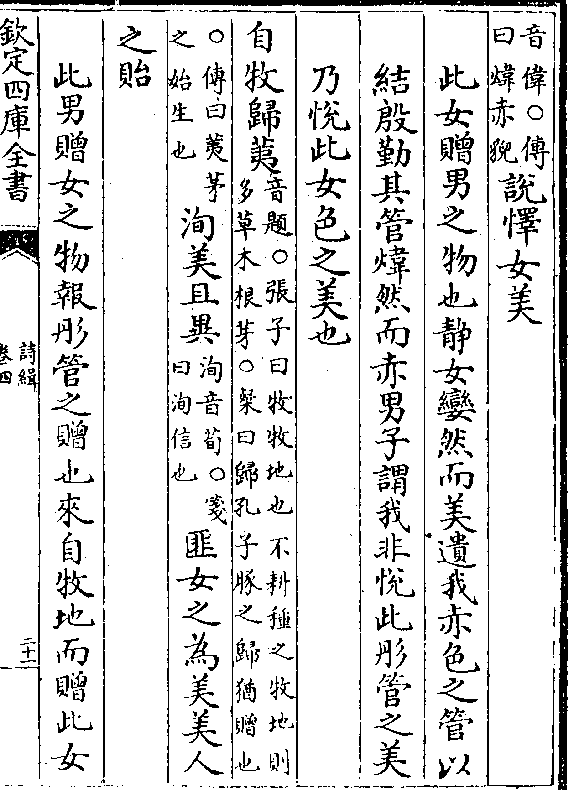 音偉○傳
曰煒赤貌
說懌女美
此女贈男之物也静女孌然而美遺我赤色之管以
結殷勤其管煒然而赤男子謂我非悅此彤管之美
乃悅此女色之美也
自牧歸荑
音題○張子曰牧牧地也不耕種之牧地則
多草木根芽○粲曰歸孔子豚之歸猶贈也
○傳曰荑茅
之始生也
洵美且異
洵音荀○箋
曰洵信也
匪女之為美美人
之貽
此男贈女之物報彤管之贈也來自牧地而贈此女
欽定四庫全書
詩緝
卷四
二十二